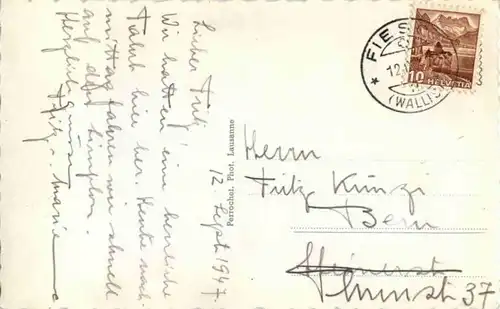 12. Sept. 1947.
Lieber Fritz!
Wir hatten eine herrliche
Fahrt hier her. Heute nach-
mittag fahren wir schnell
auf den Simplon.
Herzliche Grüsse
Fritz u. Marie
Perrochet, Phot. Lausanne
FIES
12.
(WALLIS)
10 HELVETIA
Herrn
Fritz Künzi
Bern
37